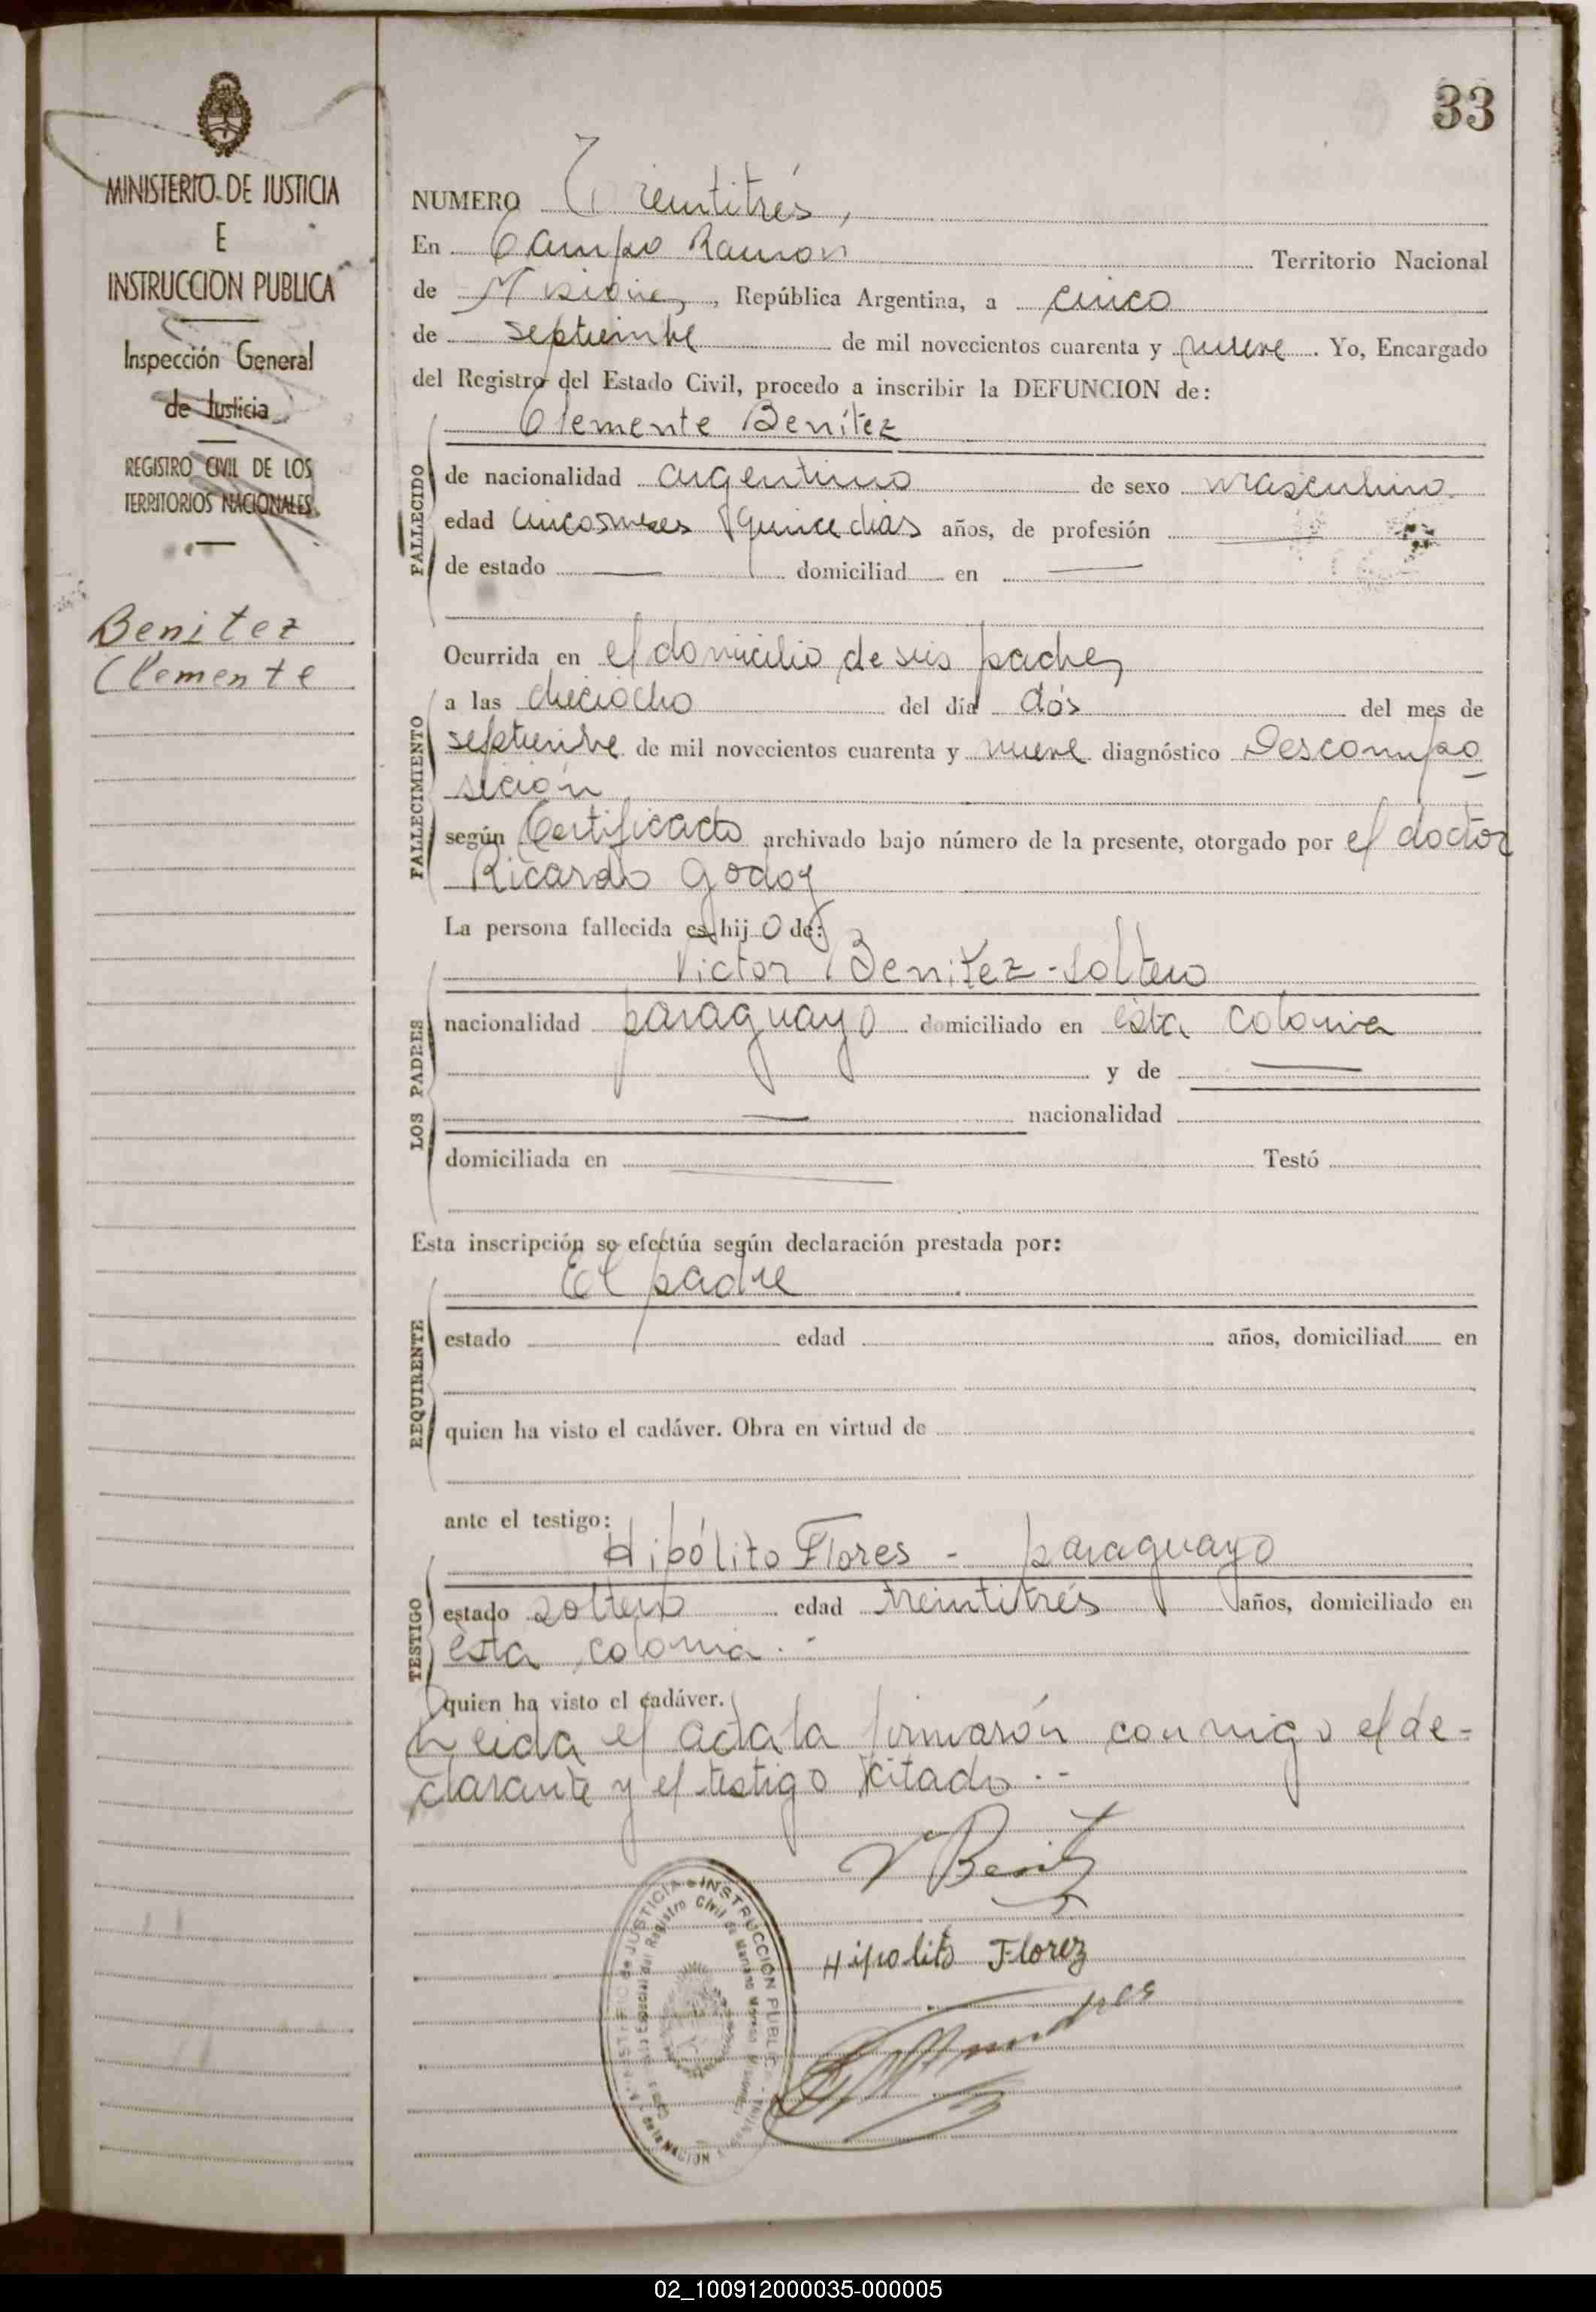 33
MINISTERIO DE JUSTICIA
E
INSTRUCCION PUBLICA
Inspección General
de Justicia
REGISTRO CIVIL DE LOS
TERRITORIOS NACIONALES
Benitez
Clemente
NUMERO Treintitrés,
En Campo Ramón Territorio Nacional
de Misiones, República Argentina, a cinco
de septiembre de mil novecientos cuarenta y nueve. Yo, Encargado
del Registro del Estado Civil, procedo a inscribir la DEFUNCION de:
FALLECIDO
Clemente Benítez
de nacionalidad argentino de sexo masculino.
edad cincos meses y quince dias años, de profesión —
de estado — domiciliad en —
Ocurrida en el domicilio de sus padres
FALLECIMIENTO
a las dieciocho del día dós del mes de
septiembre de mil novecientos cuarenta y nueve diagnóstico Descompo
sición
según Certificado archivado bajo número de la presente, otorgado por el doctor
Ricardo Godoy
La persona fallecida es hijo de:
LOS PADRES
Victor Benitez - soltero
nacionalidad paraguayo domiciliado en ésta colonia
y de —
— nacionalidad
domiciliada en — Testó
Esta inscripción se efectúa según declaración prestada por:
REQUIRENTE
El padre
estado edad años, domiciliad en
quien ha visto el cadáver. Obra en virtud de
ante el testigo:
TESTIGO
Hipólito Flores - paraguayo
estado soltero edad treintitrés años, domiciliado en
ésta colonia. -
quien ha visto el cadáver.
Leida el acta la firmarón con migo el de-
clarante y el testigo citado. -
V Benitz
Hipolito Florez
MINISTERIO de JUSTICIA e INSTRUCCION PUBLICA
de la NACION
02_100912000035-000005